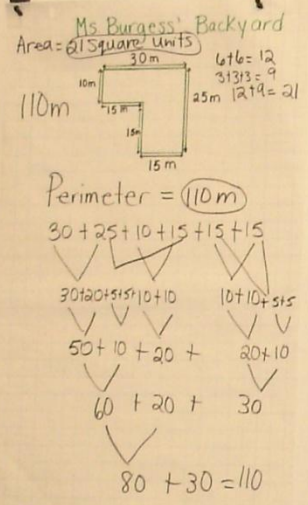 Ms. Burgess' Backyard
Area = 21 square units
30 m
6+6=12
3+3+3=9
12+9=21
10m
25m
110m
15m
15m
15 m
Perimeter = 110 m
30 + 25 + 10 + 15 + 15 + 15
30+20+5+5+10+10 10+10+5+5
50+10 + 20 + 20+10
60 + 20 + 30
80 + 30 = 110